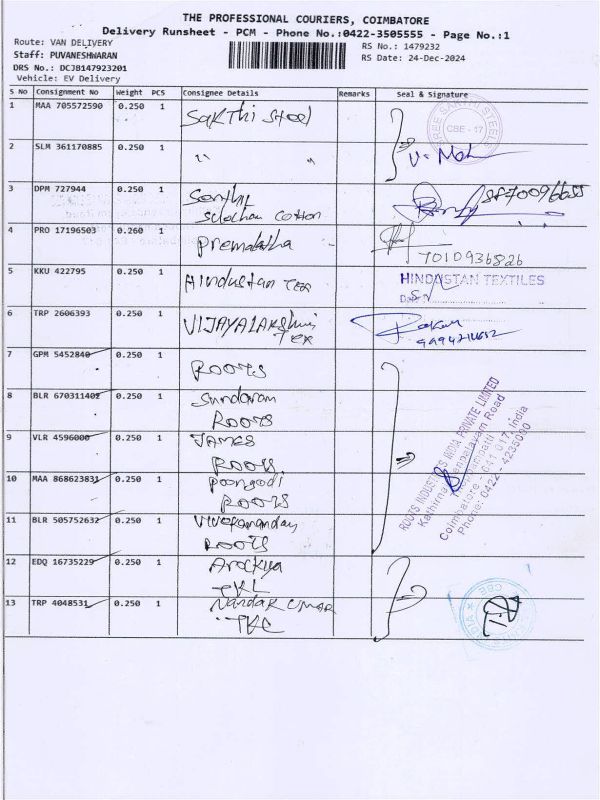 THE PROFESSIONAL COURIERS, COIMBATORE
Delivery Runsheet - PCM - Phone No.:0422-3505555 - Page No.:1
Route: VAN DELIVERY
RS No.: 1479232
Staff: PUVANESHWARAN
RS Date: 24-Dec-2024
DRS No.: DCJB147923201
Vehicle: EV Delivery
S No Consignment No Weight PCS Consignee Details Remarks Seal & Signature
1 MAA 705572590 0.250 1 Sakthi Steel
SHREE SAKTHI STEELS
CBE - 17
2 SLM 361170885 0.250 1 " "
3 DPM 727944 0.250 1 Senthil
Sulochana Cotton
4 PRO 17196503 0.260 1 Premalatha 7010936826
5 KKU 422795 0.250 1 Hindustan Tex HINDUSTAN TEXTILES
6 TRP 2606393 0.250 1 VIJAYALAKSHMI
Tex
7 GPM 5452840 0.250 1 ROOTS
8 BLR 670311402 0.250 1 Sundaram
ROOTS
9 VLR 4596000 0.250 1 JAMES
ROOTS
ROOTS INDUSTRIES INDIA PRIVATE LIMITED
Coimbatore - 641 017, India
Phone: 0422 - 4235000
10 MAA 868623831 0.250 1 Poongodi
ROOTS
11 BLR 505752632 0.250 1 Vivekanandan
ROOTS
12 EDQ 16735229 0.250 1 Arockya
TKL
13 TRP 4048531 0.250 1 Nandakumar